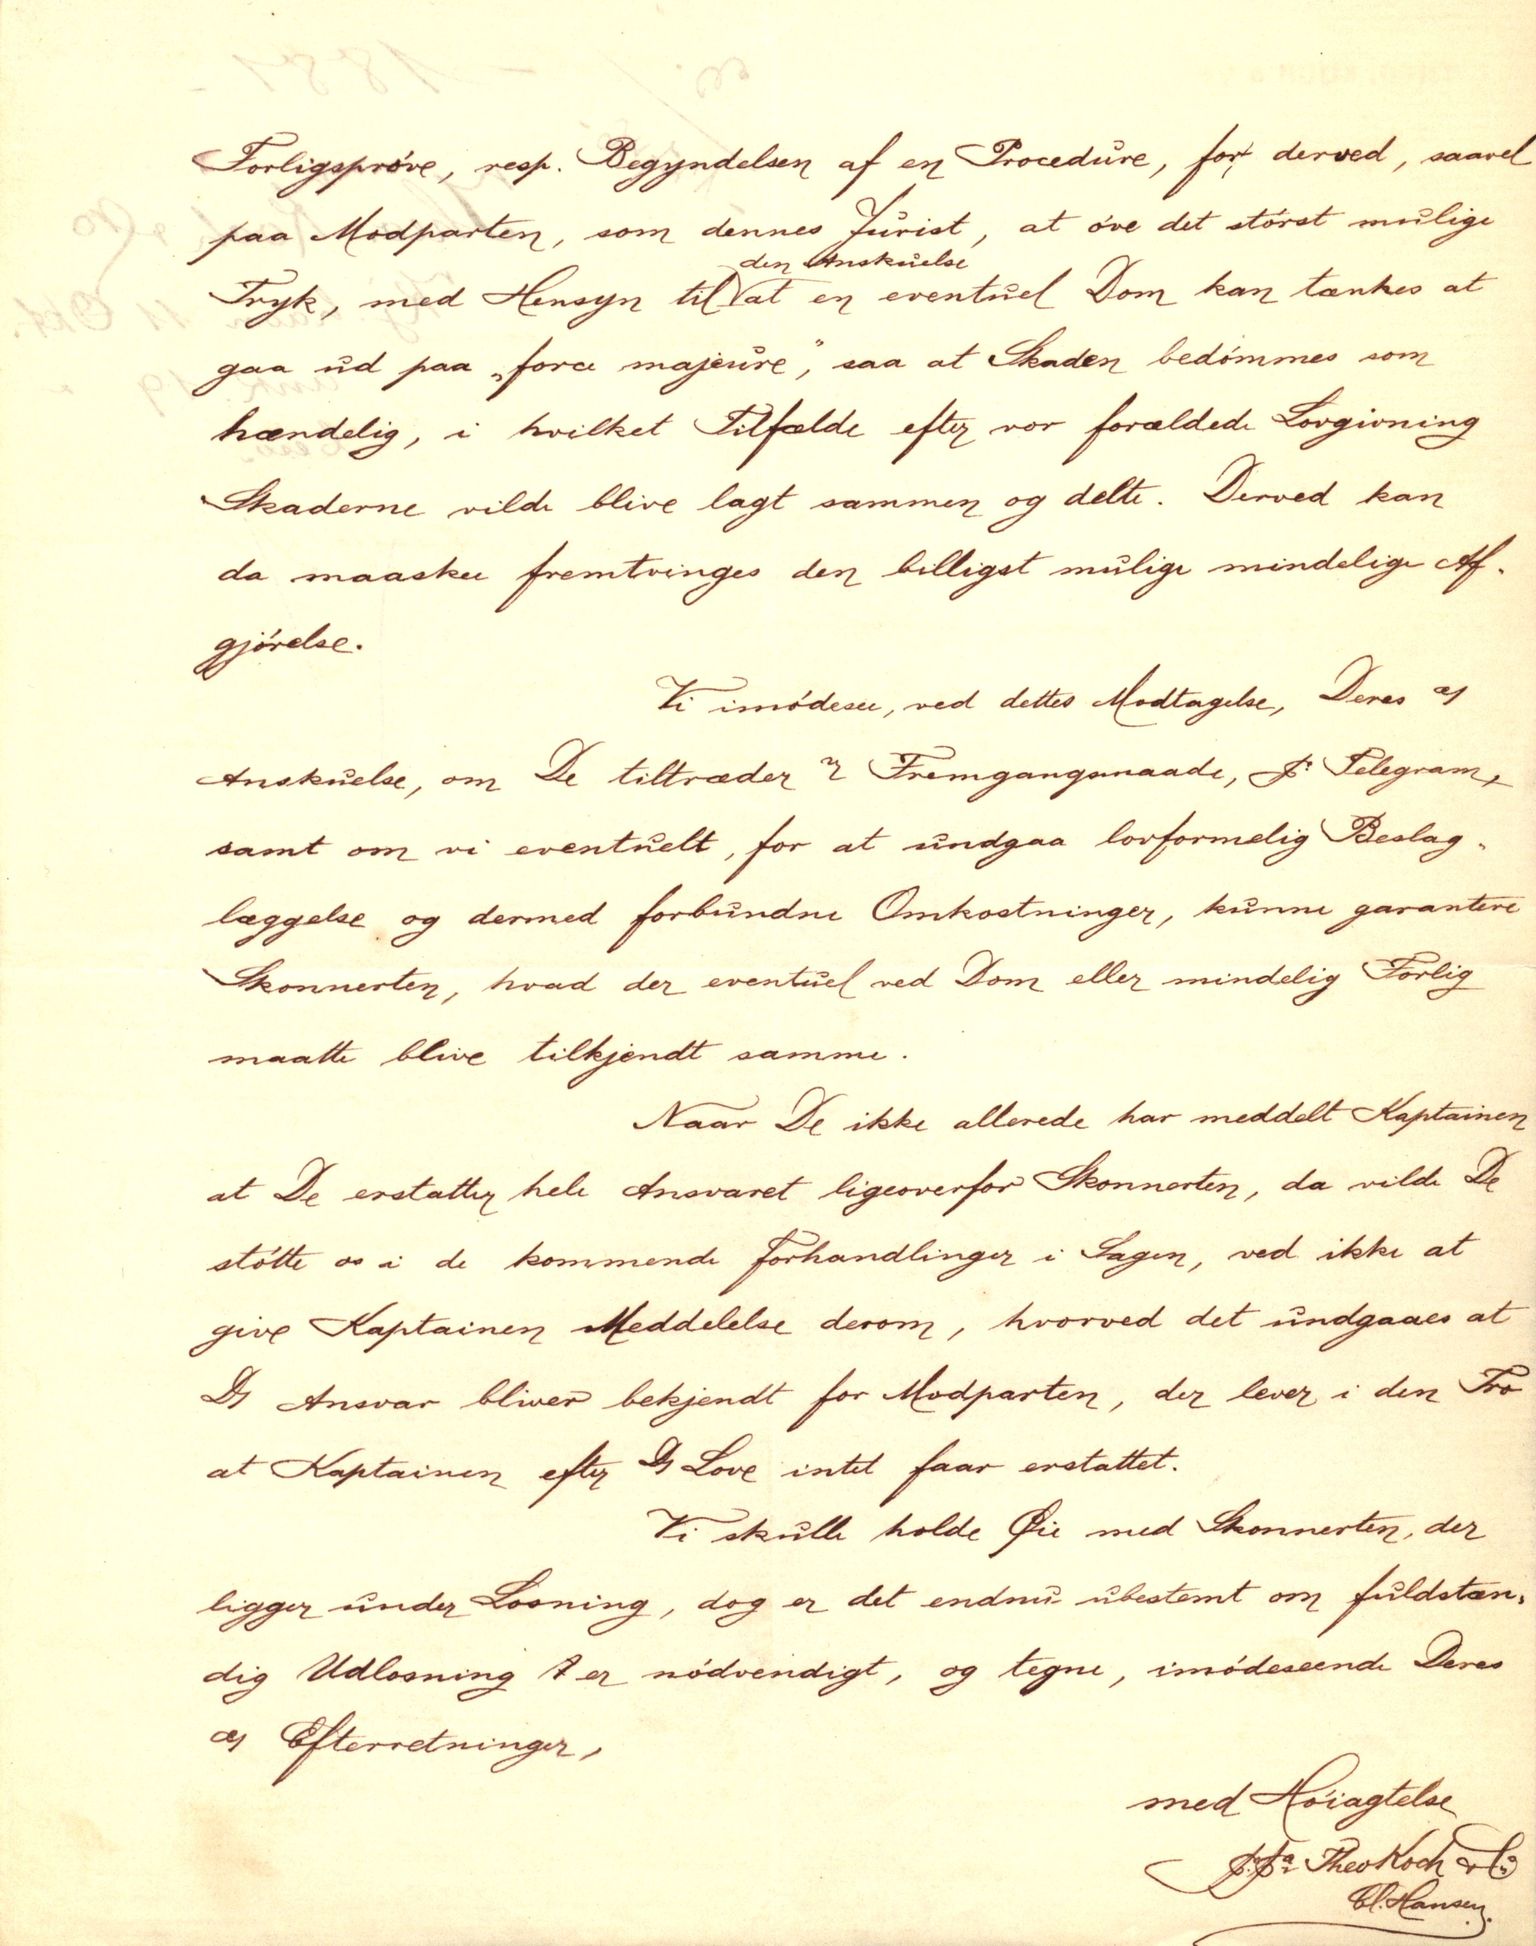 Forligsprøve, resp. Begyndelsen af en Procedure, for derved, saavel
paa Modparten, som dennes Jurist, at øve det størst mulige
den Anskuelse
Tryk, med Hensyn til at en eventuel Dom kan tænkes at
gaa ud paa „force majeure”, saa at Skaden bedømmes som
hændelig, i hvilket Tilfælde efter vor forældede Lovgivning
Skaderne vilde blive lagt sammen og delte. Derved kan
da maaskee fremtvinges den billigst mulige mindelige Af-
gjørelse.
Vi imødesee, ved dettes Modtagelse, Deres æ
Anskuelse, om De tiltræder Fremgangsmaade, pr Telegram,
samt om vi eventuelt, for at undgaa lovformelig Beslag-
læggelse og dermed forbundne Omkostninger, kunne garantere
Skonnerten, hvad der eventuel ved Dom eller mindelig Forlig
maatte blive tilkjendt samme.
Naar De ikke allerede har meddelt Kaptainen
at De erstatter hele Ansvaret ligeoverfor Skonnerten, da vilde De
støtte os i de kommende Forhandlinger i Sagen, ved ikke at
give Kaptainen Meddelelse derom, hvorved det undgaaes at
Ds Ansvar bliver bekjendt for Modparten, der lever i den Tro
at Kaptainen efter Ds Love intet faar erstattet.
Vi skulle holde Øie med Skonnerten, der
ligger under Losning, dog er det endnu ubestemt om fuldstæn-
dig Udlosning er nødvendigt, og tegne, imødeseende Deres
æ Efterretninger,
med Høiagtelse
p. pa Theo Koch & Co
Cl. Hansen.